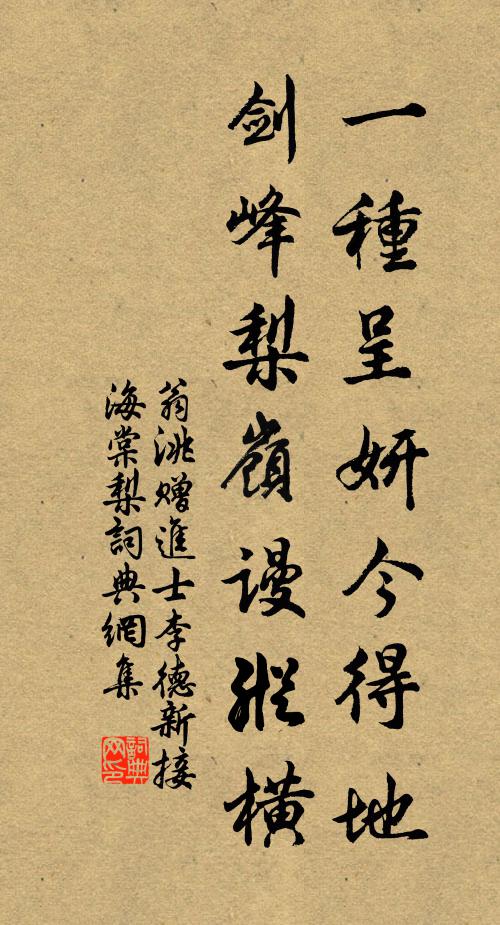 一種呈妍今得地
剑峰梨嶺謾縱橫
翁洮贈進士李德新接
海棠梨詞典網集
詞典
网印